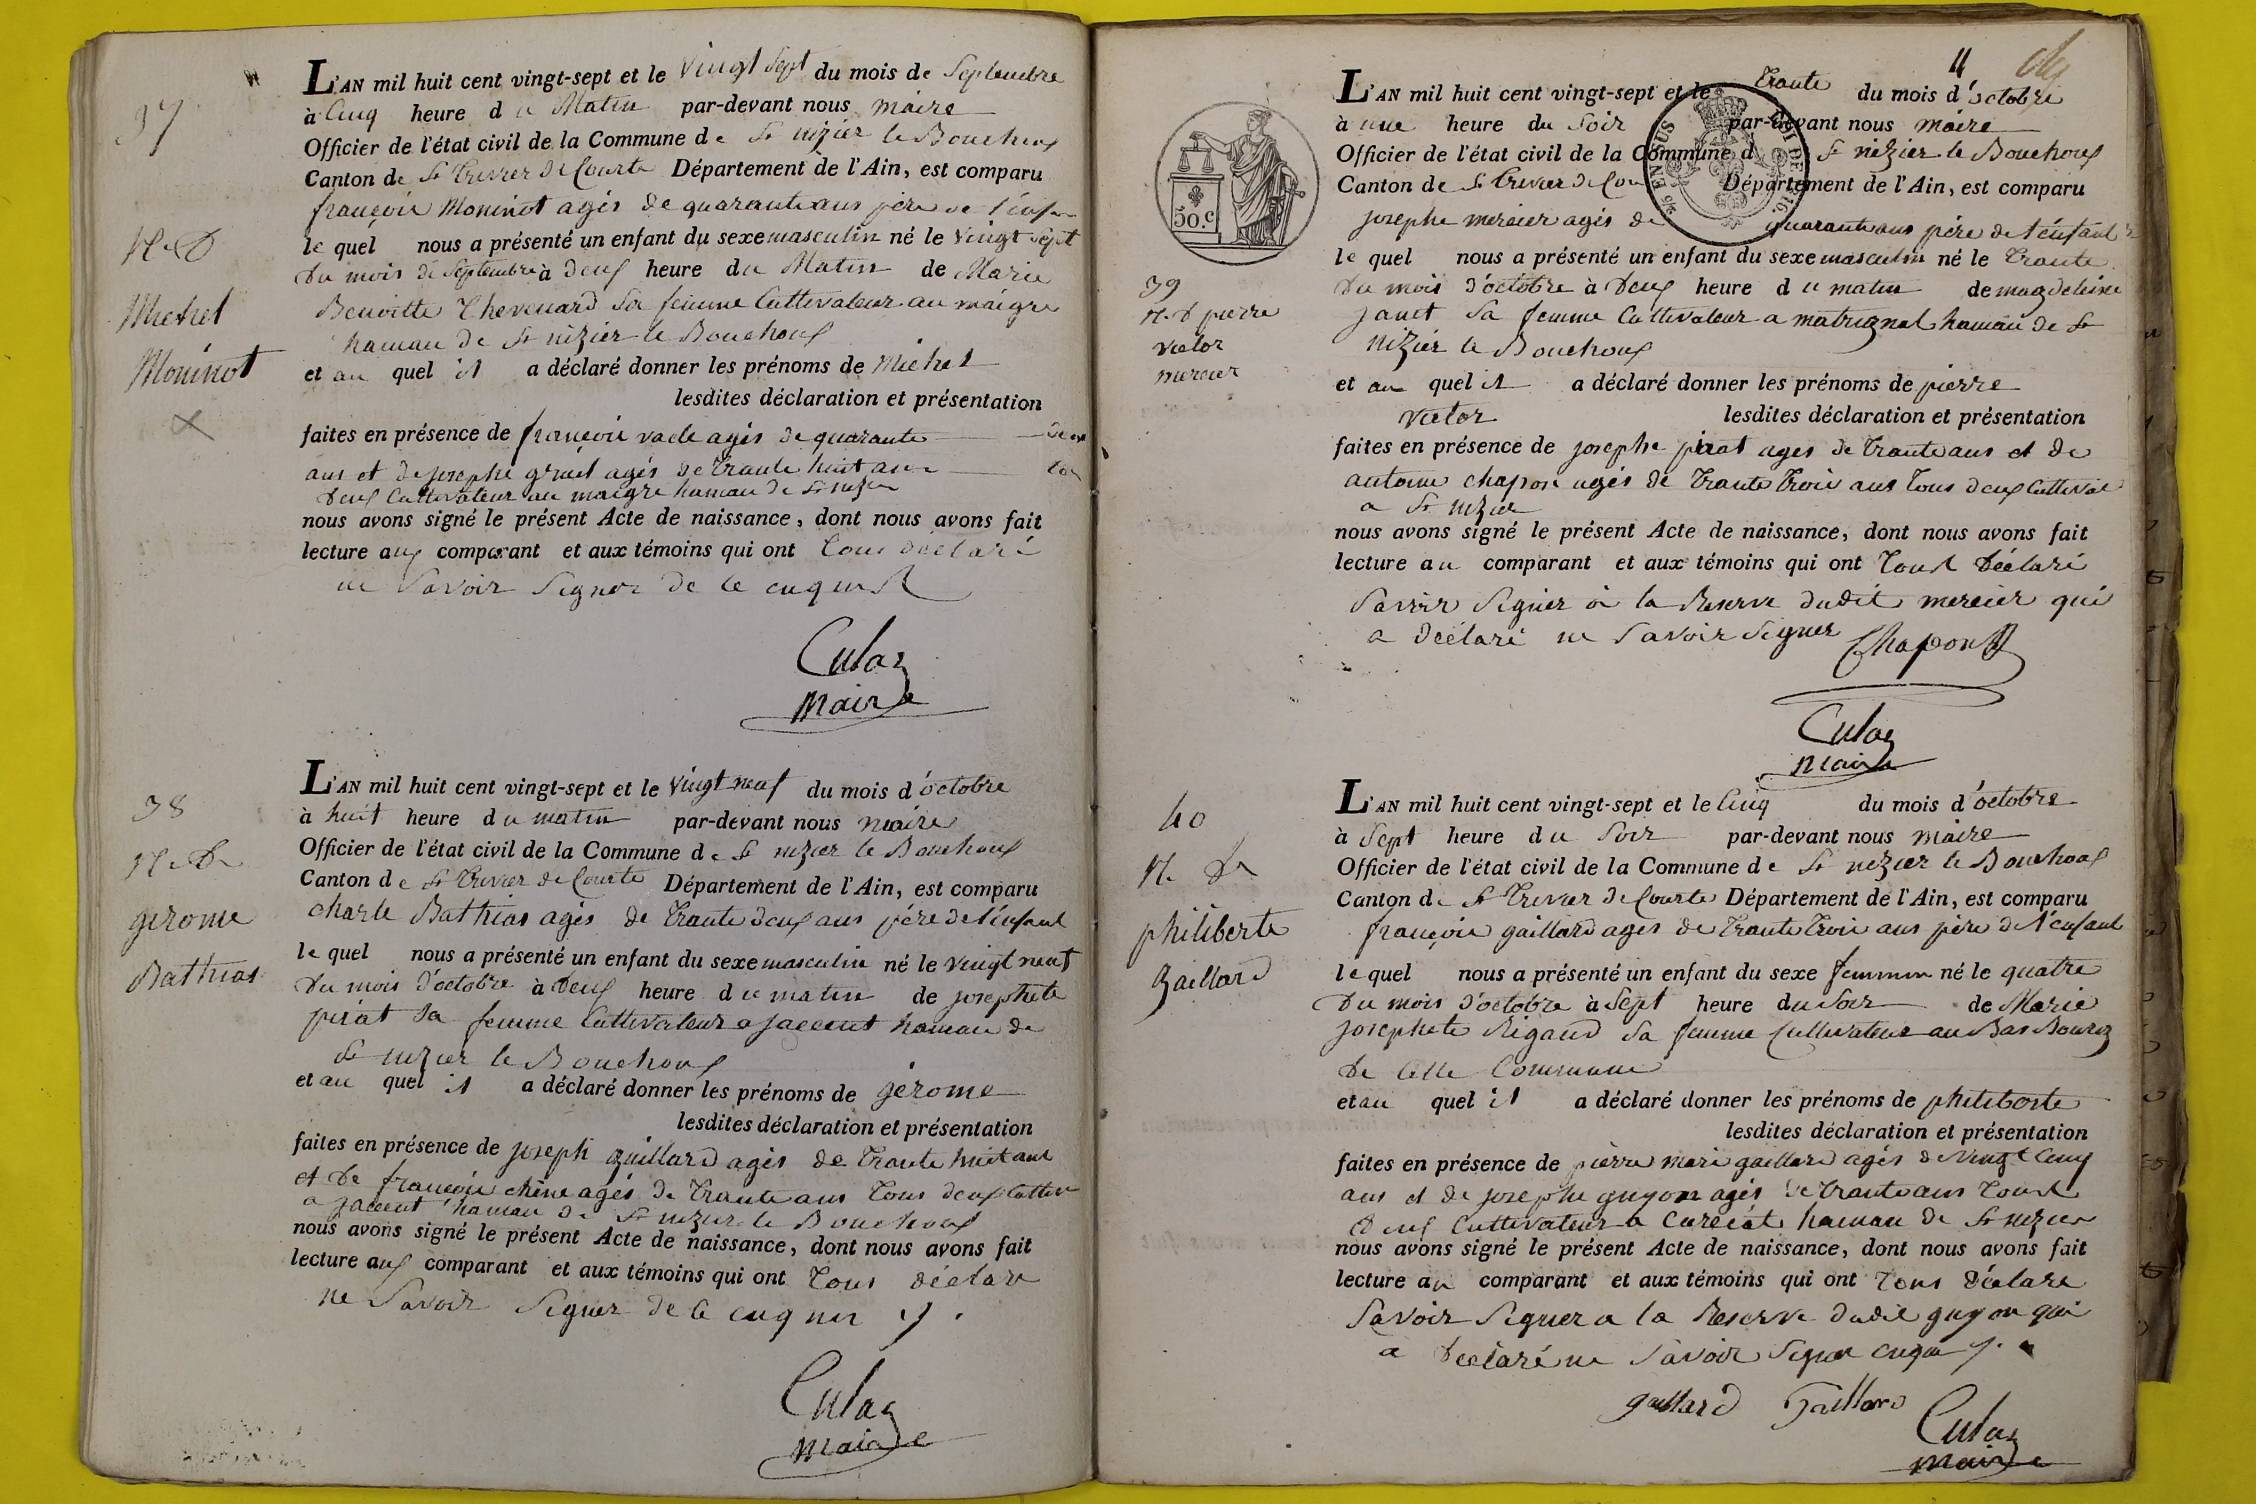 37
N. D
Michel
Moninot
L'AN mil huit cent vingt-sept et le vingt sept du mois de Septembre
à Cinq heure du Matin par-devant nous maire
Officier de l'état civil de la Commune de St nizier le Bouchoux
Canton de St trivier De Courte Département de l'Ain, est comparu
françois Moninot agés de quarante ans père de l'enfan
le quel nous a présenté un enfant du sexe masculin né le vingt sept
Du mois de Septembre à deux heure du Matin de Marie
Benoitte Thevenard Sa femme Cultivateur au maigre
hamau de St nizier le Bouchoux
et au quel il a déclaré donner les prénoms de Michel
lesdites déclaration et présentation
faites en présence de françois vacle agés de quarante
ans et de josephe gruel agés de trante huit ans
Deux Cultivateur au maigre hamau de St nizier
nous avons signé le présent Acte de naissance, dont nous avons fait
lecture aux comparant et aux témoins qui ont tous déclaré
ne Savoir Signer de ce enquis
Culaz
Maire
38
N. D
gerome
Bathias
L'AN mil huit cent vingt-sept et le vingt neuf du mois d'octobre
à huit heure du matin par-devant nous maire
Officier de l'état civil de la Commune de St nizier le Bouchoux
Canton de St trivier de Courte Département de l'Ain, est comparu
charle Bathias agés de trante deux ans père de l'enfant
le quel nous a présenté un enfant du sexe masculin né le vingt neuf
Du mois d'octobre à deux heure du matin de josephete
pirat Sa femme Cultivateur a jaccent hamau de
St nizier le Bouchoux
et au quel il a déclaré donner les prénoms de gérome
lesdites déclaration et présentation
faites en présence de joseph gaillard agés de trante huit ans
et De françois chêne agés de trante ans tous deux Cultiv
a jaccent hamau de St nizier le Bouchoux
nous avons signé le présent Acte de naissance, dont nous avons fait
lecture aux comparant et aux témoins qui ont tous déclaré
ne Savoir Signer de ce enquis
Culaz
maire
11
50.c
39
N. D pierre
victor
mercier
L'AN mil huit cent vingt-sept et le trante du mois d'octobre
à une heure du Soir par-devant nous maire
Officier de l'état civil de la Commune d St nizier le Bouchoux
Canton de St trivier de Cou Département de l'Ain, est comparu
josephe mercier agés de quarante ans père de l'enfant
le quel nous a présenté un enfant du sexe masculin né le trante
Du mois d'octobre à Deux heure du matin de magdeleine
janet Sa femme Cultivateur a matrignat hamau de St
nizier le Bouchoux
et au quel il a déclaré donner les prénoms de pierre
victor lesdites déclaration et présentation
faites en présence de josephe pirat ages de trante ans et de
antoine chapon agés de trante trois ans tous deux Cultivat
a St nizier
nous avons signé le présent Acte de naissance, dont nous avons fait
lecture au comparant et aux témoins qui ont tous Déclaré
Savoir Signer à la Reserve dudit mercier qui
a déclaré ne Savoir Signer Chapon
Culaz
maire
40
N. D
philiberte
gaillard
L'AN mil huit cent vingt-sept et le Cinq du mois d'octobre
à Sept heure du Soir par-devant nous maire
Officier de l'état civil de la Commune de St nizier le Bouchoux
Canton de St trivier de Courte Département de l'Ain, est comparu
françois gaillard agés de trante trois ans père de l'enfant
le quel nous a présenté un enfant du sexe feminin né le quatre
Du mois d'octobre à Sept heure du Soir de Marie
josephete Rigaud Sa femme Cultivateur au Bas Bourg
De Cette Commune
et au quel il a déclaré donner les prénoms de philiberte
lesdites déclaration et présentation
faites en présence de pierre marie gaillard agés de vingt Cinq
ans et de josephe guyon agés de trante ans tous
Deux Cultivateur a Curciat hamau de St nizier
nous avons signé le présent Acte de naissance, dont nous avons fait
lecture au comparant et aux témoins qui ont tous Déclaré
Savoir Signer a la Reserve dudit guyon qui
a Déclaré ne Savoir Signer enquis
gaillard Gaillard
Culaz
maire